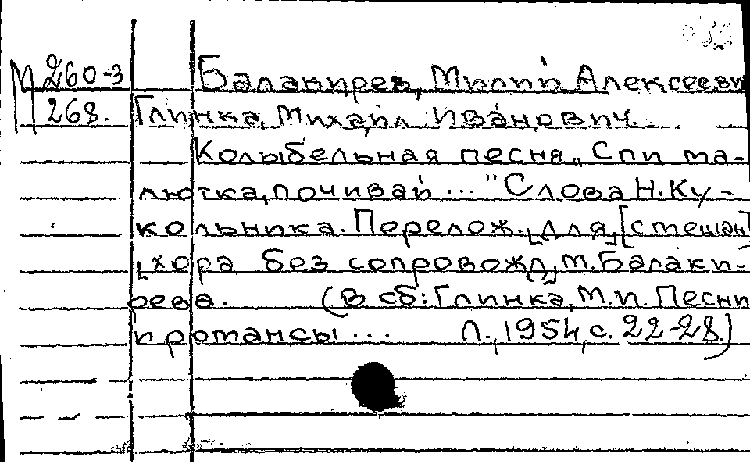 М 260-3 Балакирев, Милий Алексееви
268. Глинка, Михаил Иванович.
Колыбельная песня „Спи ма-
лютка, почивай ..." Слова Н. Ку-
кольника. Перелож. для [смешан]
хора без сопровожд. М. Балаки-
рева. (В сб: Глинка, М. И. Песни
и романсы ... Л., 1954, с. 22-28.)